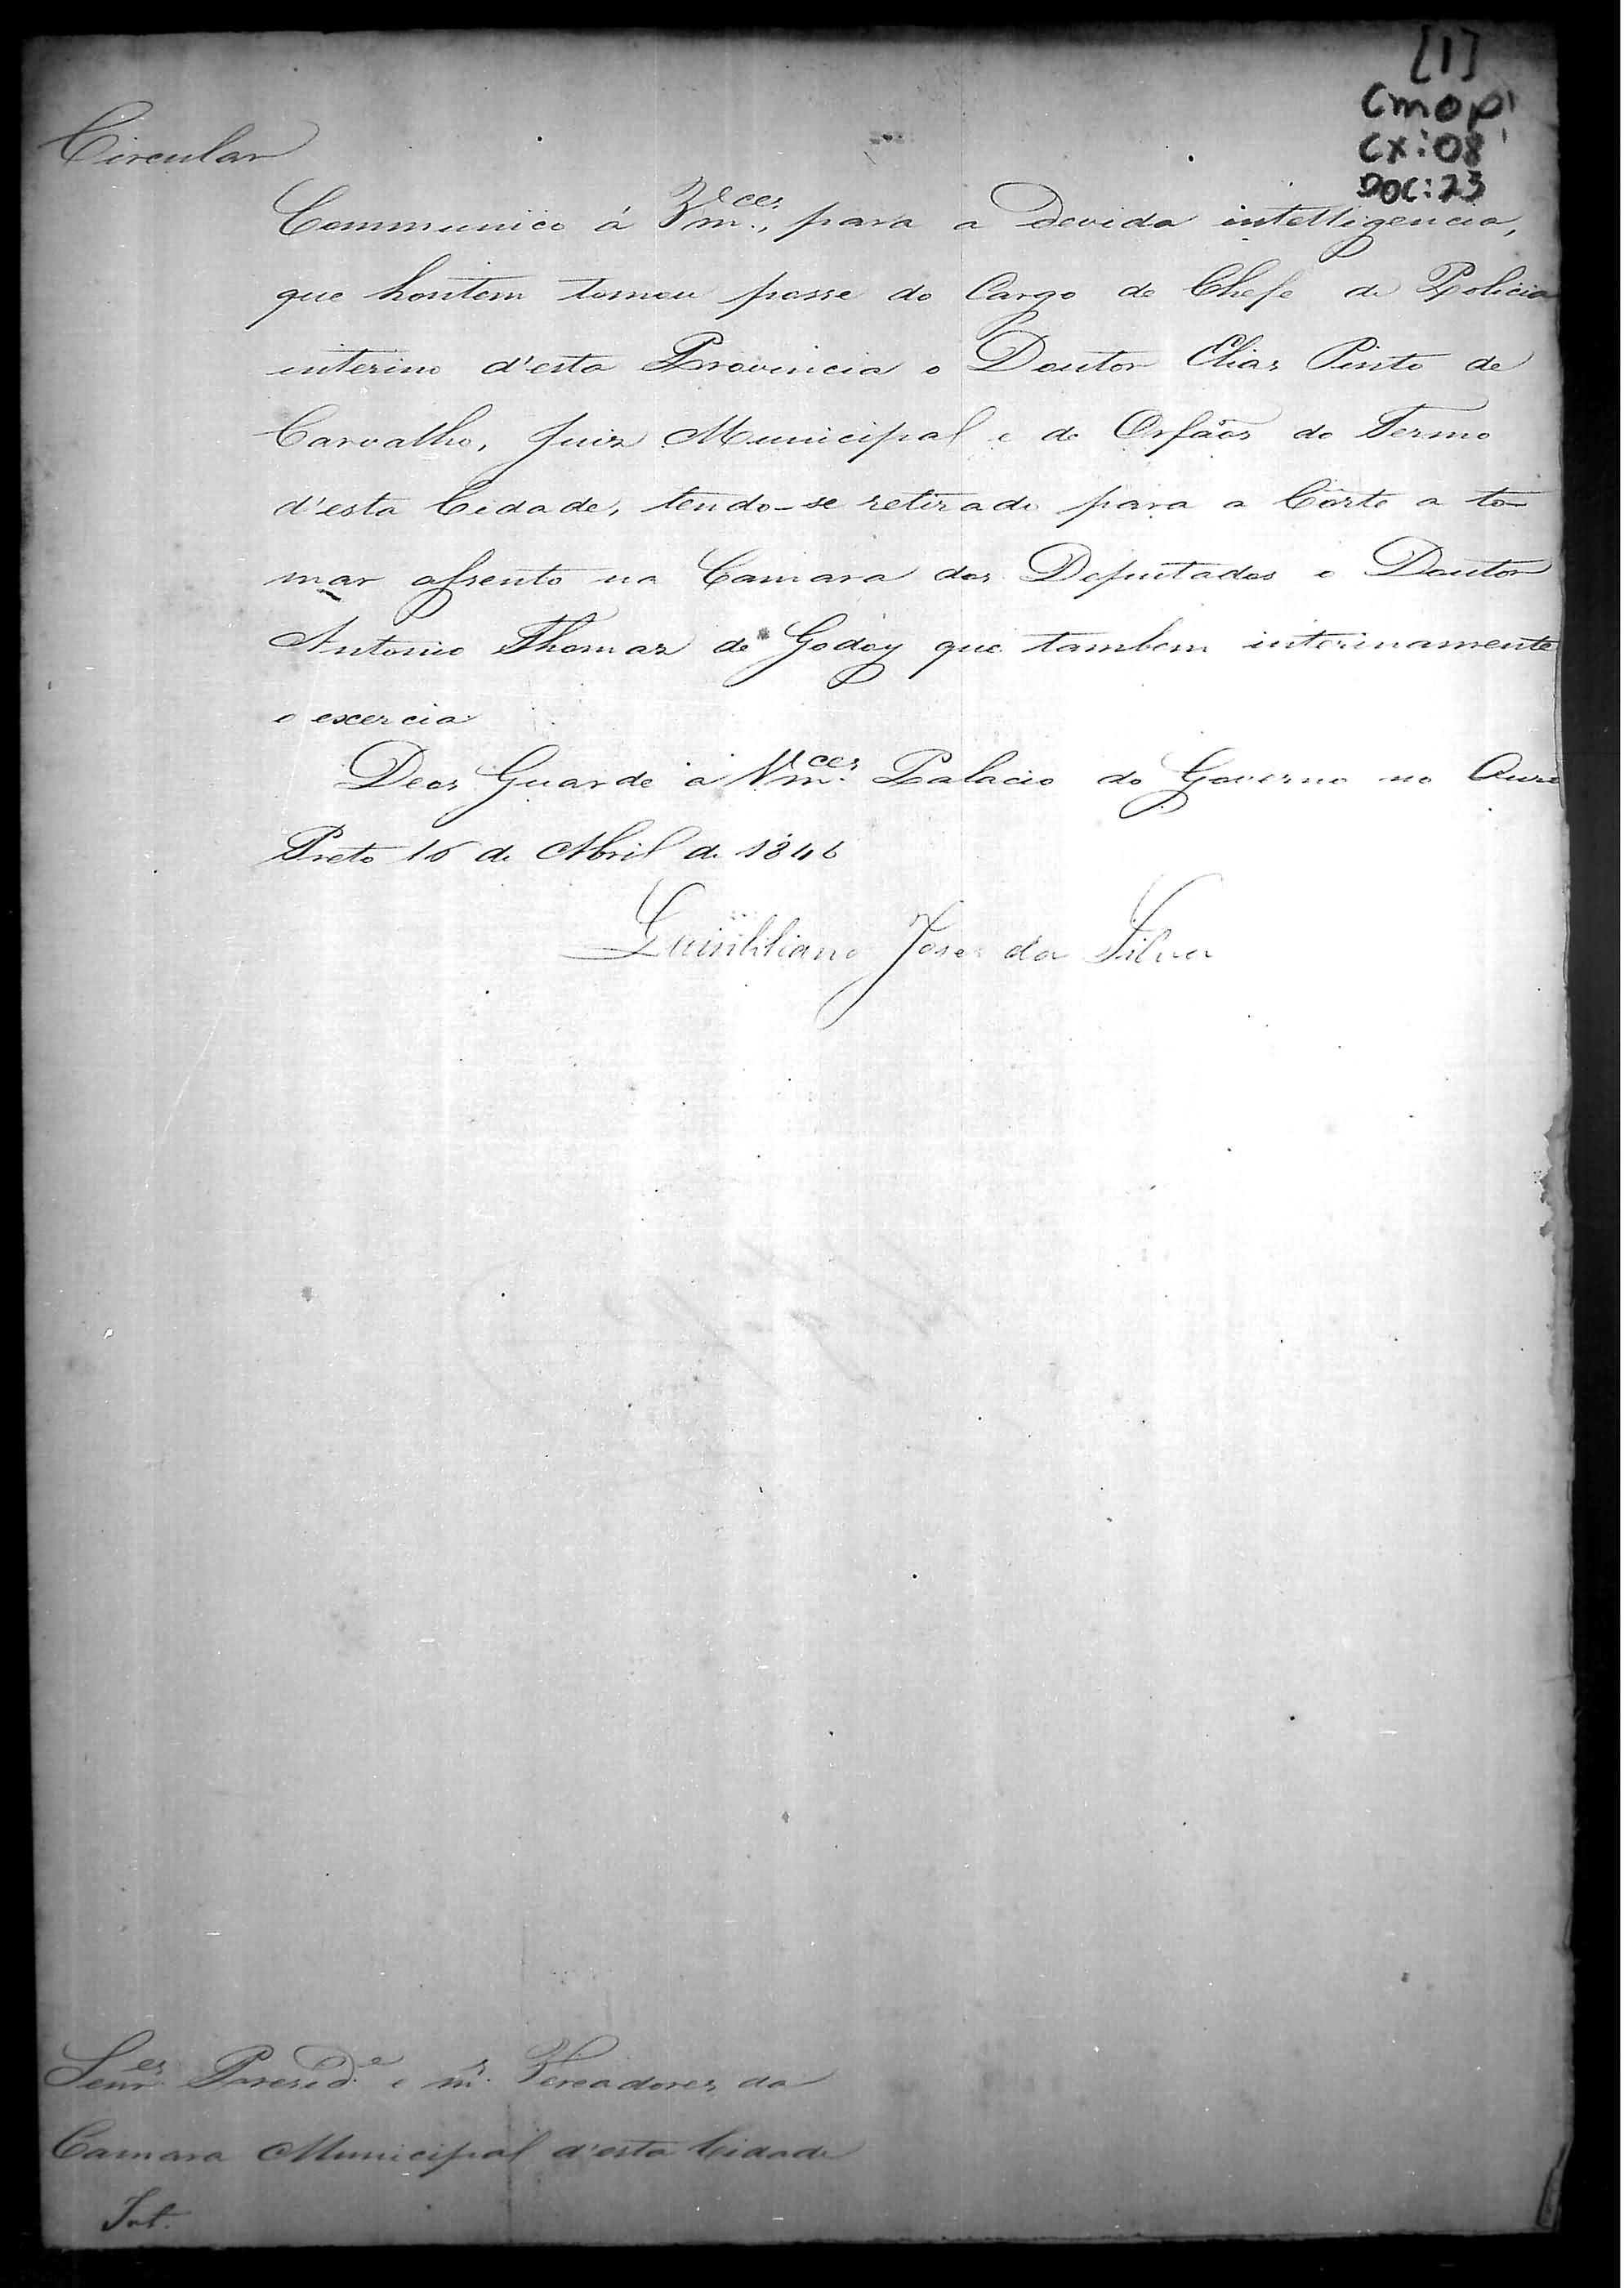 [1]
CMOP
CX:08
DOC:23
Circular
Communico á Vm.ces, para a devida intelligencia,
que hontem tomou posse do Cargo de Chefe de Policia
interino d'esta Provincia o Doutor Elias Pinto de
Carvalho, Juiz Municipal e de Orfãos do Termo
d'esta Cidade, tendo-se retirado para a Côrte a to-
mar assento na Camara dos Deputados o Doutor
Antonio Thomaz de Godoy que tambem interinamente
o exercia
Deos Guarde a Vm.ces Palacio do Governo no Ouro
Preto 16 de Abril de 1846
Quintiliano José da Silva
Senr.es Presid.e e m.s Vereadores da
Camara Municipal d'esta Cidade